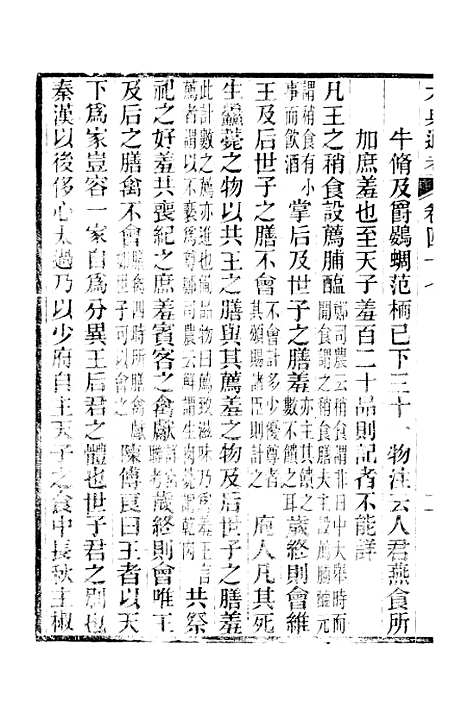 卷四十七
牛脩及爵鷃蜩范栭已下三十一物注云人君燕食所
加庶羞也至天子羞百二十品則記者不能詳
凡王之稍食設薦脯醢鄭司農云稍食謂非日中大舉時而
閒食謂之稍食膳夫主設薦脯醢元
謂稍食有小
事而飲酒掌后及世子之膳羞亦主其饋之
數不饋之耳歲終則會唯
王及后世子之膳不會不會計多少優尊者
其頒賜諸臣則計之庖人凡其死
生鱻薧之物以共王之膳與其薦羞之物及后世子之膳羞
共祭
祀之好羞共喪紀之庶羞賓客之禽獻歲終則會唯王
及后之膳禽不會膳禽四時所膳禽獻
世子可以會之陳傅良曰王者以天
下爲家豈容一家自爲分異王后君之體也世子君之副也
秦漢以後侈心太過乃以少府自主天子之食中長秋主椒